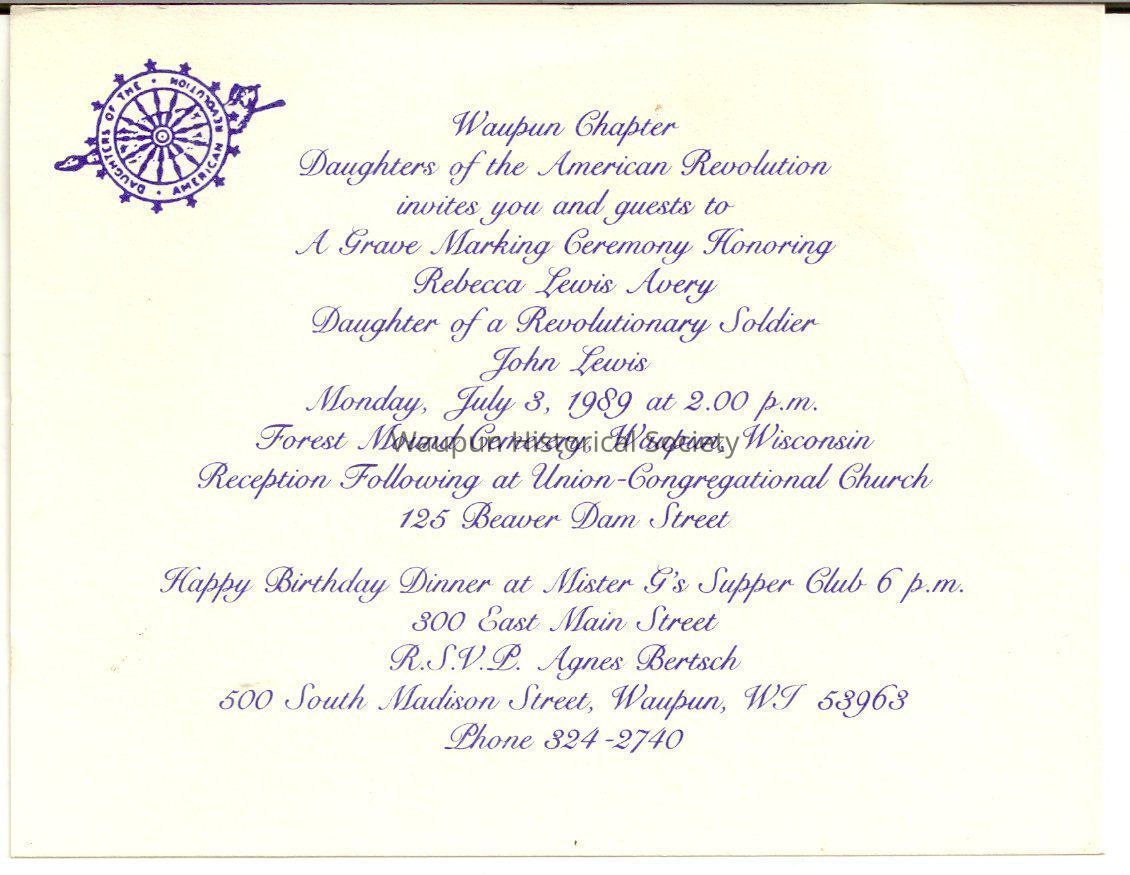 DAUGHTERS OF THE • AMERICAN REVOLUTION •
Waupun Chapter
Daughters of the American Revolution
invites you and guests to
A Grave Marking Ceremony Honoring
Rebecca Lewis Avery
Daughter of a Revolutionary Soldier
John Lewis
Monday, July 3, 1989 at 2.00 p.m.
Forest Mound Cemetery, Waupun, Wisconsin
Waupun Historical Society
Reception Following at Union-Congregational Church
125 Beaver Dam Street
Happy Birthday Dinner at Mister G's Supper Club 6 p.m.
300 East Main Street
R.S.V.P. Agnes Bertsch
500 South Madison Street, Waupun, WI 53963
Phone 324-2740